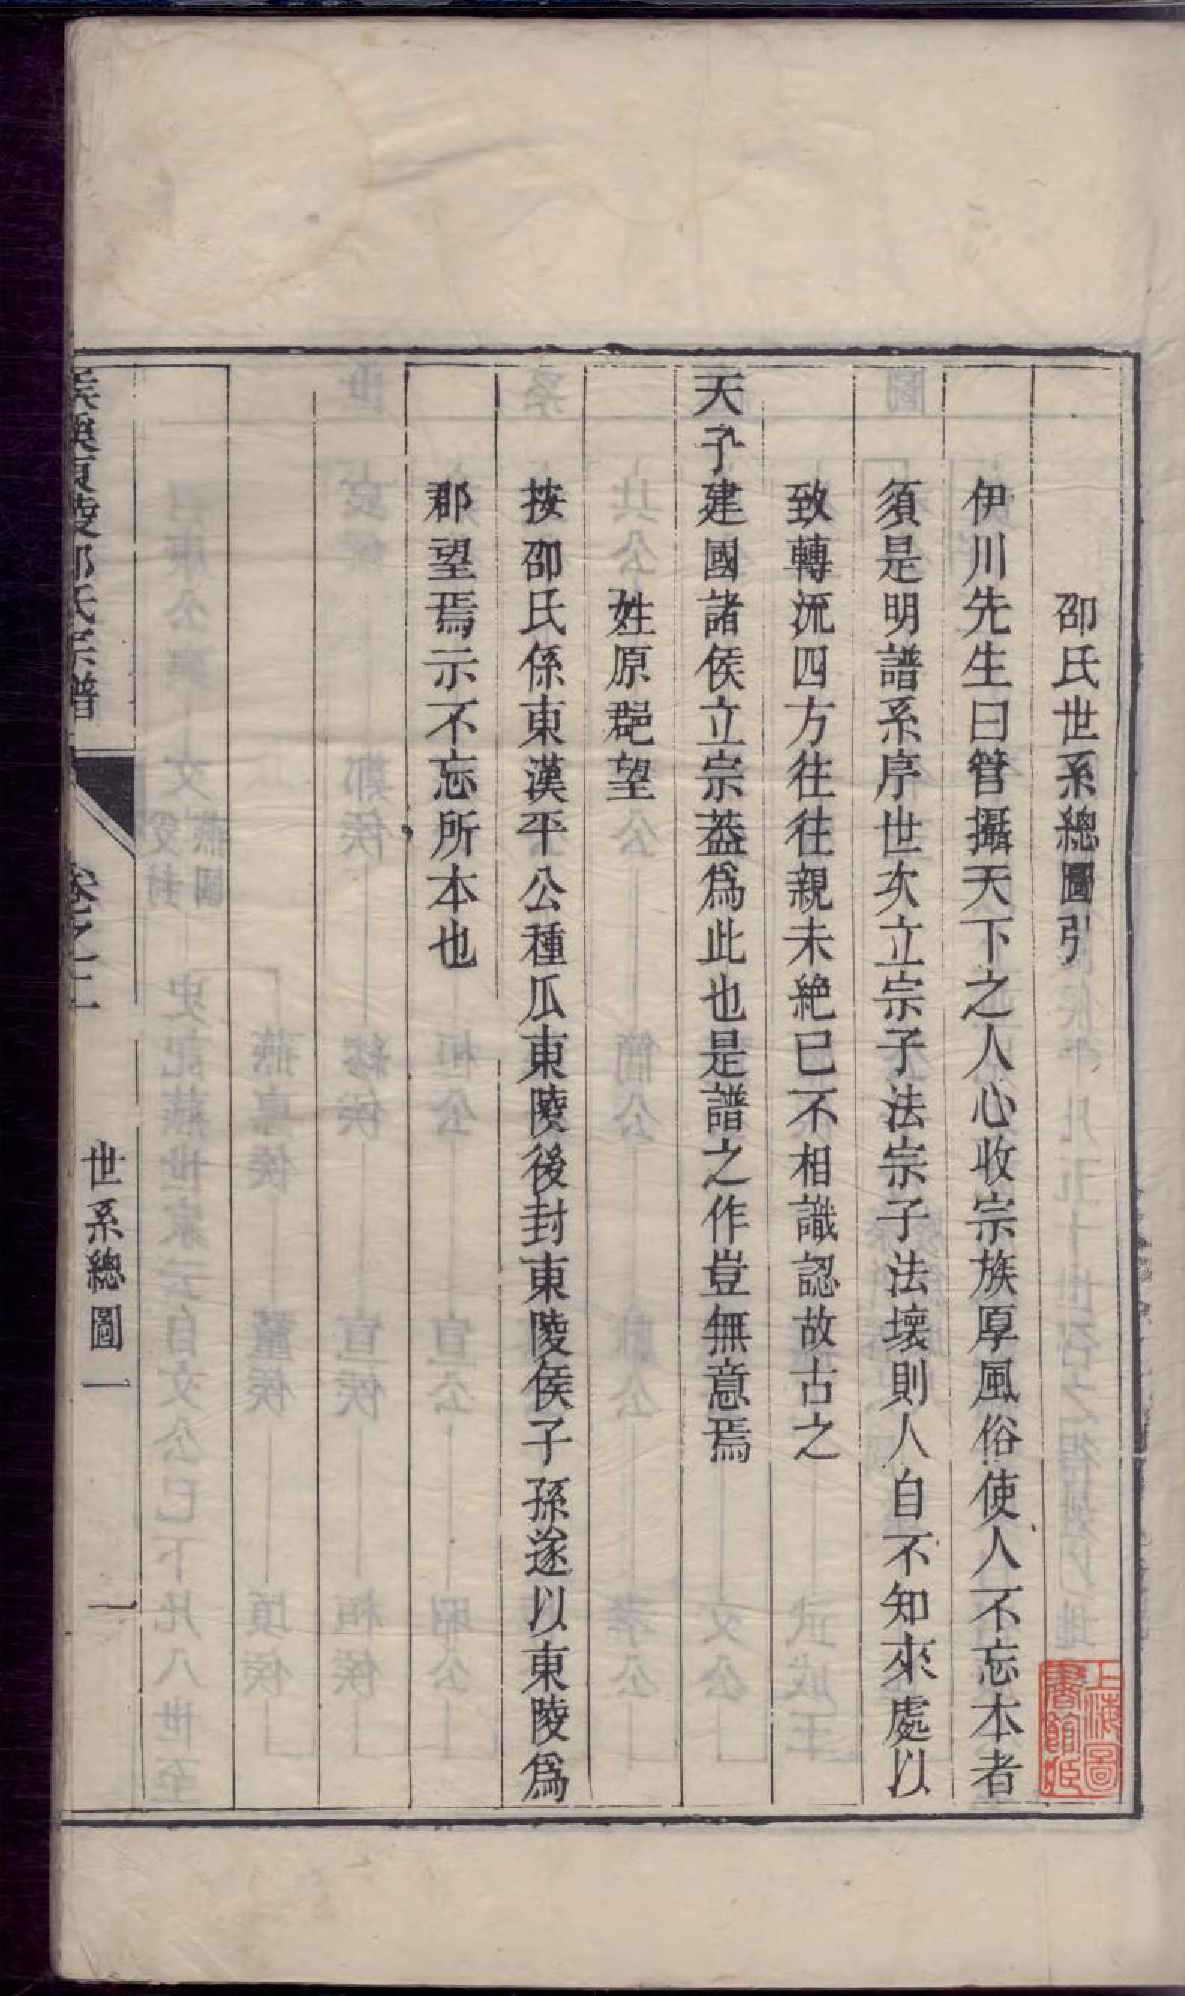 邵氏世系總圖引
伊川先生曰管攝天下之人心收宗族厚風俗使人不忘本者
須是明譜系序世次立宗子法宗子法壞則人自不知來處以
致轉流四方往往親未絶已不相識認故古之
天子建國諸侯立宗葢爲此也是譜之作豈無意焉
姓原郡望
按邵氏係東漢平公種瓜東陵後封東陵侯子孫遂以東陵爲
郡望焉示不忘所本也
東陵邵氏宗譜
卷之二
世系總圖一
一
上海圖
書館藏